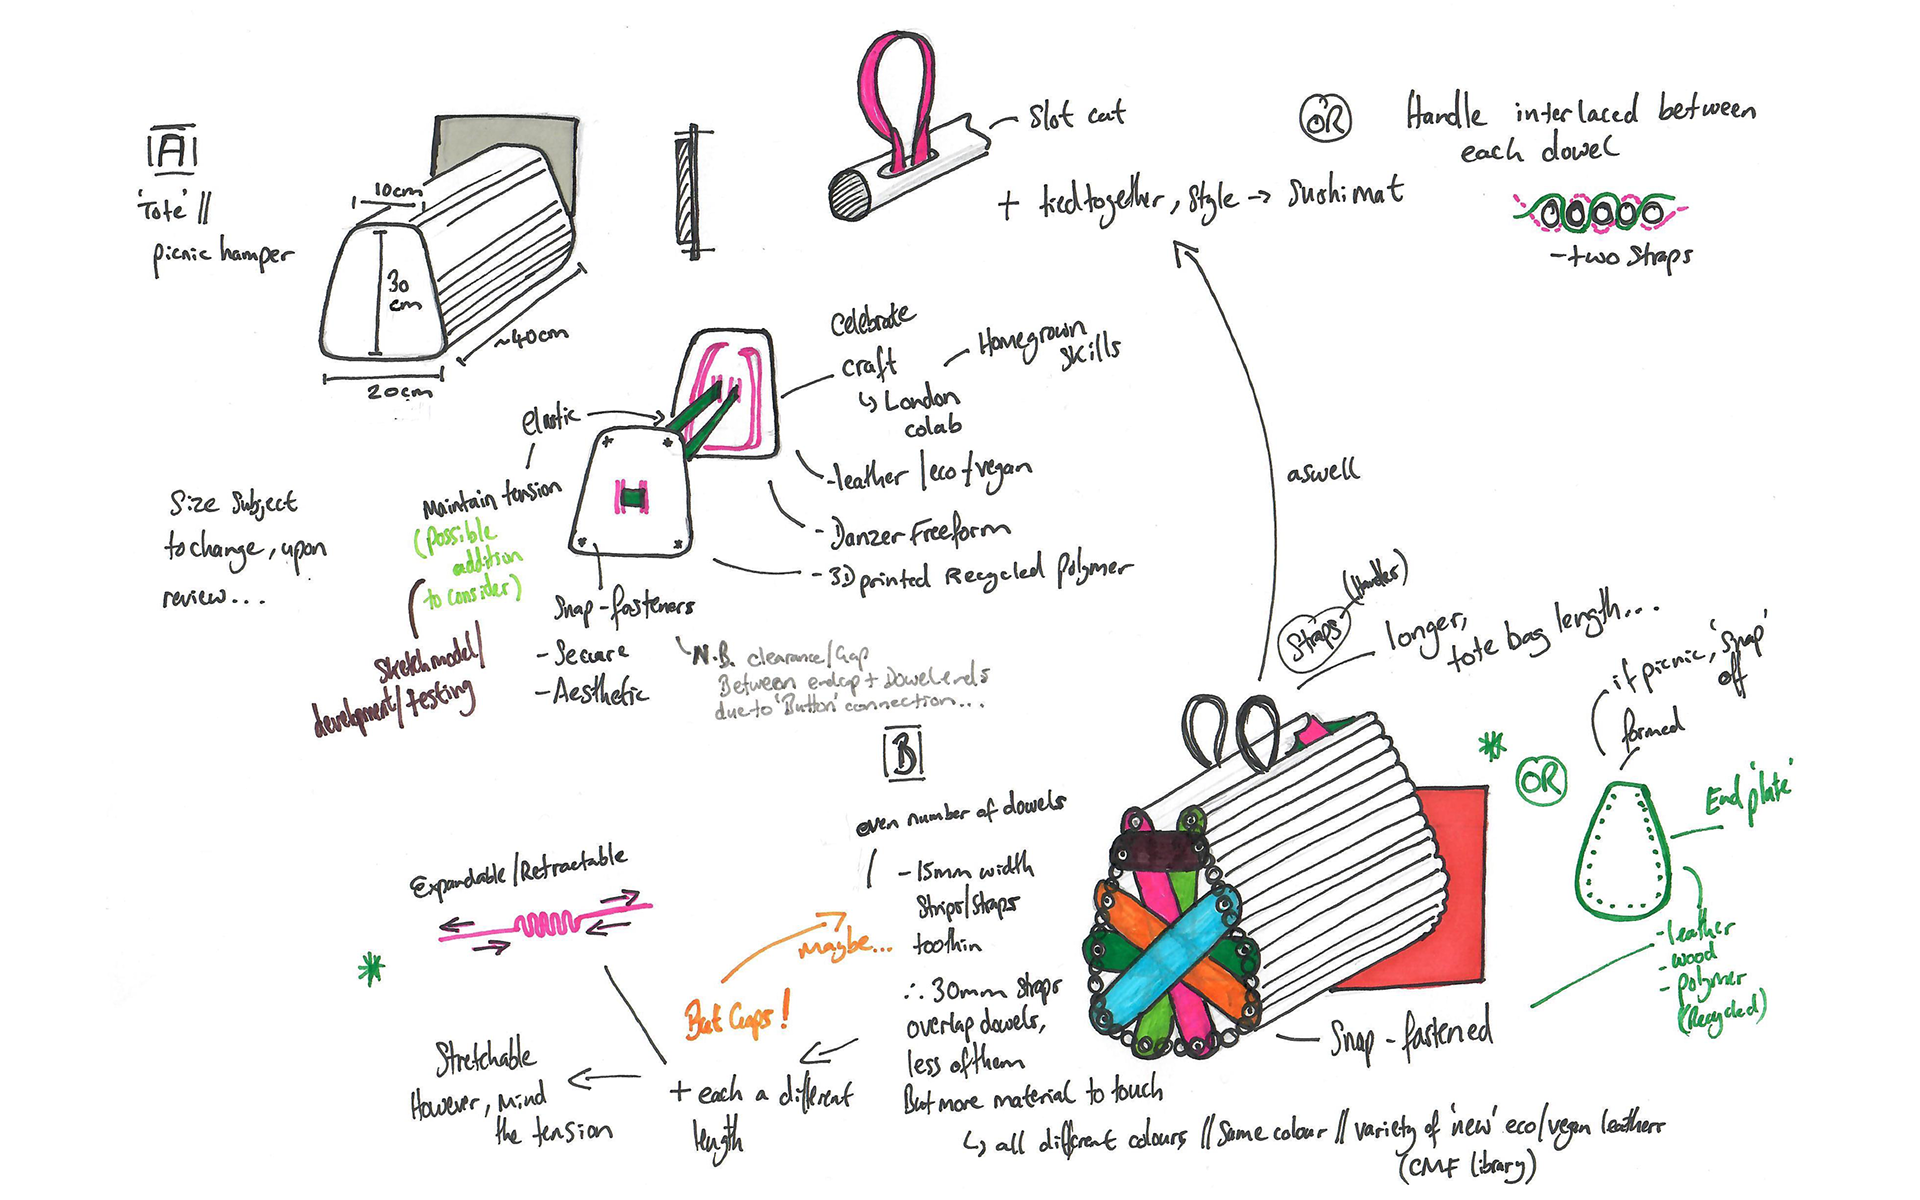 A
'Tote' //
picnic hamper
10cm
30
cm
20cm
~40cm
Slot cut
+ tied together, style → Sushimat
OR
Handle interlaced between
each dowel
- two straps
Celebrate
craft
↳ London
colab
Homegrown
Skills
- leather / eco + vegan
- Danzer Freeform
- 3D printed Recycled Polymer
elastic
Maintain tension
(Possible
addition
to consider)
Stretch model/
development/testing
Size Subject
to change, upon
review...
Snap-fasteners
- Secure
- Aesthetic
N.B. clearance/Gap
Between endcap + Dowel ends
due to 'Button' connection...
aswell
Straps
(Handles)
longer,
tote bag length...
if picnic, 'snap'
off
formed
OR
End 'plate'
- leather
- wood
- polymer
(Recycled)
Snap-fastened
B
even number of dowels
- 15mm width
Strips/straps
too thin
∴ 30mm straps
overlap dowels,
less of them
But more material to touch
↳ all different colours // Same colour // variety of 'new' eco/vegan leathers
(CMF library)
maybe...
But Gaps!
Expandable/Retractable
+ each a different
length
Stretchable
However, mind
the tension